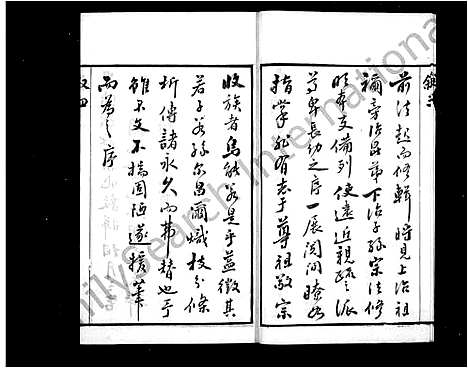 前法起而修輯時見上治祖
禰旁治昆弟下治子孫宗法修
明本支備列使遠近親疏之派
尊卑長幼之序一展閱間瞭如
指掌非有志于尊祖敬宗
收族者烏能若是乎益徵其
若子若孫尔昌爾熾枝分條
析傳諸永久而弗替也乎
雖不文不揣固陋遂援筆
而為之序
FamilySearch International